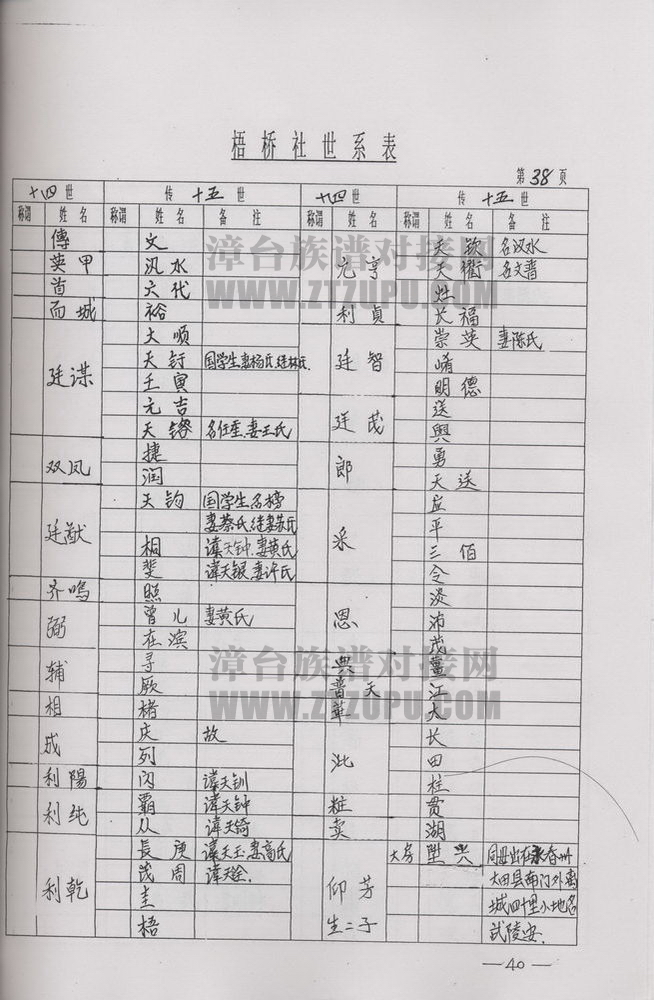 梧桥社世系表
第38页
十四世 传十五世 十四世 传十五世
称谓 姓名 称谓 姓名 备注 称谓 姓名 称谓 姓名 备注
傅 文 元亨 天钦 名汉水
英甲 汎水 天衢 名文普
首 六代 灶
而城 裕 利貞 长福
廷谋 大顺 廷智 崇英 妻陈氏
天 国学生妻杨氏,继林氏
壬寅 明德
元吉 廷茂 送
天 妻王氏 興
双凤 捷 郎 勇
润 天送
廷猷 天钧 国学生名榜 采
妻蔡氏,继妻苏氏 平
桐 諱天钟,妻黄氏 三佰
斐 諱天银,妻许氏 令
齐鸣 照 恩 淡
弼 曾儿 妻黄氏 沛
在滨 茂
辅 寻 典 薑
厥 普天 江
相 楮 華 大
成 庆 故 沘 长
列 田
利陽 闪 諱天钏 柱
利纯 霸 諱天钟 粧 贯
从 諱天锜 卖 湖
利乾 長庚 諱天玉,妻高氏 仰芳 大房 陞兴 同母出在永春州
茂周 諱天 大田县南门外离
圭 城四十里小地名
梧 生二子 試陵安.
—40—
漳台族谱对接网
WWW.ZTZUPU.COM
漳台族谱对接网
WWW.ZTZUPU.COM